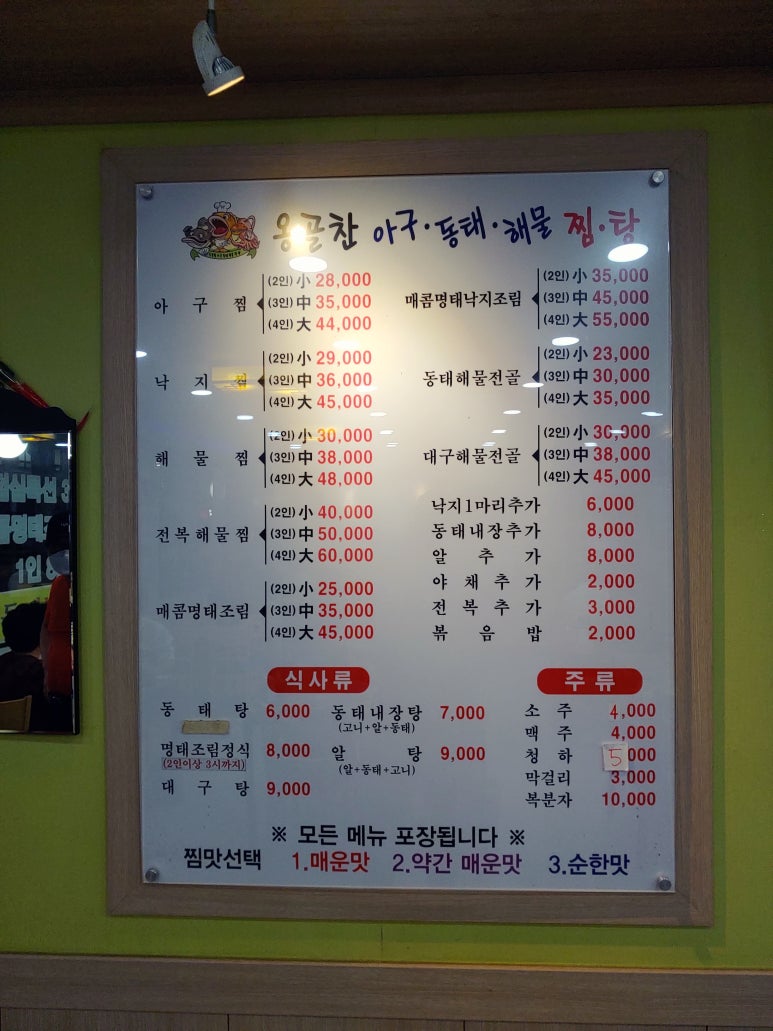 옹골찬 아구·동태·해물 찜·탕
아구찜
(2인) 小 28,000
(3인) 中 35,000
(4인) 大 44,000
낙지찜
(2인) 小 29,000
(3인) 中 36,000
(4인) 大 45,000
해물찜
(2인) 小 30,000
(3인) 中 38,000
(4인) 大 48,000
전복해물찜
(2인) 小 40,000
(3인) 中 50,000
(4인) 大 60,000
매콤명태조림
(2인) 小 25,000
(3인) 中 35,000
(4인) 大 45,000
매콤명태낙지조림
(2인) 小 35,000
(3인) 中 45,000
(4인) 大 55,000
동태해물전골
(2인) 小 23,000
(3인) 中 30,000
(4인) 大 35,000
대구해물전골
(2인) 小 30,000
(3인) 中 38,000
(4인) 大 45,000
낙지1마리추가 6,000
동태내장추가 8,000
알추가 8,000
야채추가 2,000
전복추가 3,000
볶음밥 2,000
식사류
동태탕 6,000
명태조림정식 8,000
(2인이상 3시까지)
대구탕 9,000
동태내장탕 7,000
(고니+알+동태)
알탕 9,000
(알+동태+고니)
주류
소주 4,000
맥주 4,000
청하 5000
막걸리 3,000
복분자 10,000
※ 모든 메뉴 포장됩니다 ※
찜맛선택 1.매운맛 2.약간 매운맛 3.순한맛